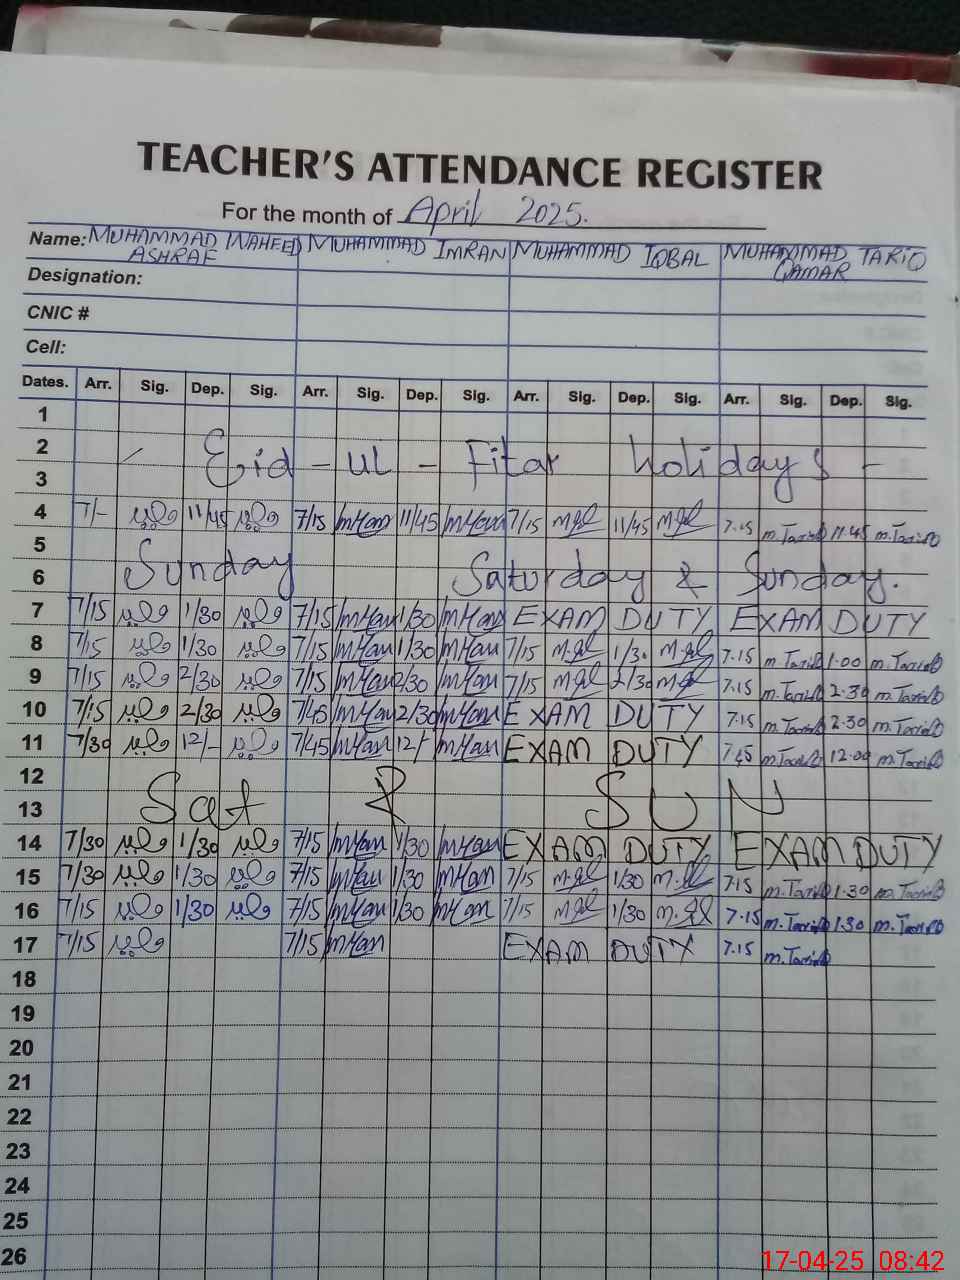 TEACHER'S ATTENDANCE REGISTER
For the month of April 2025.
Name: MUHAMMAD WAHEED ASHRAF MUHAMMAD IMRAN MUHAMMAD IQBAL MUHAMMAD TARIQ QAMAR
Designation:
CNIC #
Cell:
Dates. Arr. Sig. Dep. Sig. Arr. Sig. Dep. Sig. Arr. Sig. Dep. Sig. Arr. Sig. Dep. Sig.
1
2 Eid - ul - Fitar holidays -
3
4 7/- ولید 11/45 ولید 7/15 11/45 7/15 11/45 7.15 m.Tariq 11.45 m.Tariq
5
6 Sunday Saturday & Sunday.
7 7/15 ولید 1/30 ولید 7/15 1/30 EXAM DUTY EXAM DUTY
8 7/15 ولید 1/30 ولید 7/15 1/30 7/15 1/30 7.15 m.Tariq 1.00 m.Tariq
9 7/15 ولید 2/30 ولید 7/15 2/30 7/15 2/30 7.15 m.Tariq 2.30 m.Tariq
10 7/15 ولید 2/30 ولید 7/45 2/30 EXAM DUTY 7.15 m.Tariq 2.30 m.Tariq
11 7/30 ولید 12/- ولید 7/45 12/- EXAM DUTY 7.45 m.Tariq 12.00 m.Tariq
12
13 Sat & SUN
14 7/30 ولید 1/30 ولید 7/15 1/30 EXAM DUTY EXAM DUTY
15 7/30 ولید 1/30 ولید 7/15 1/30 7/15 1/30 7.15 m.Tariq 1.30 m.Tariq
16 7/15 ولید 1/30 ولید 7/15 1/30 7/15 1/30 7.15 m.Tariq 1.30 m.Tariq
17 7/15 ولید 7/15 EXAM DUTY 7.15 m.Tariq
18
19
20
21
22
23
24
25
26
17-04-25 08:42